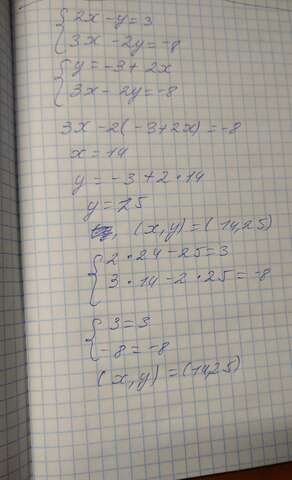 {2x - y = 3
{3x - 2y = -8
{y = -3 + 2x
{3x - 2y = -8
3x - 2(-3+2x) = -8
x = 14
y = -3 + 2·14
y = 25
(x,y) = (14,25)
{2·24 - 25 = 3
{3·14 - 2·25 = -8
{3 = 3
{-8 = -8
(x,y) = (14,25)